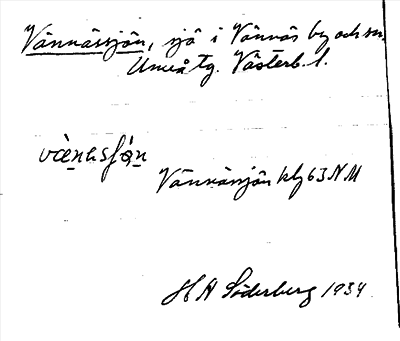 Vännässjön, sjö i Vännäs by och sn,
Umeå tg. Västerb. l.
Vännäsjön klg 63 NM
H A Söderberg 1934.